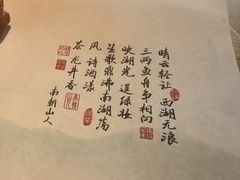 晴云轻让 西湖无浪
三两鱼舟争相向
映湖光 逞绿妆
笙歌鼎沸南湖荡
风诗酒漾
茶龙井香
南朝山人